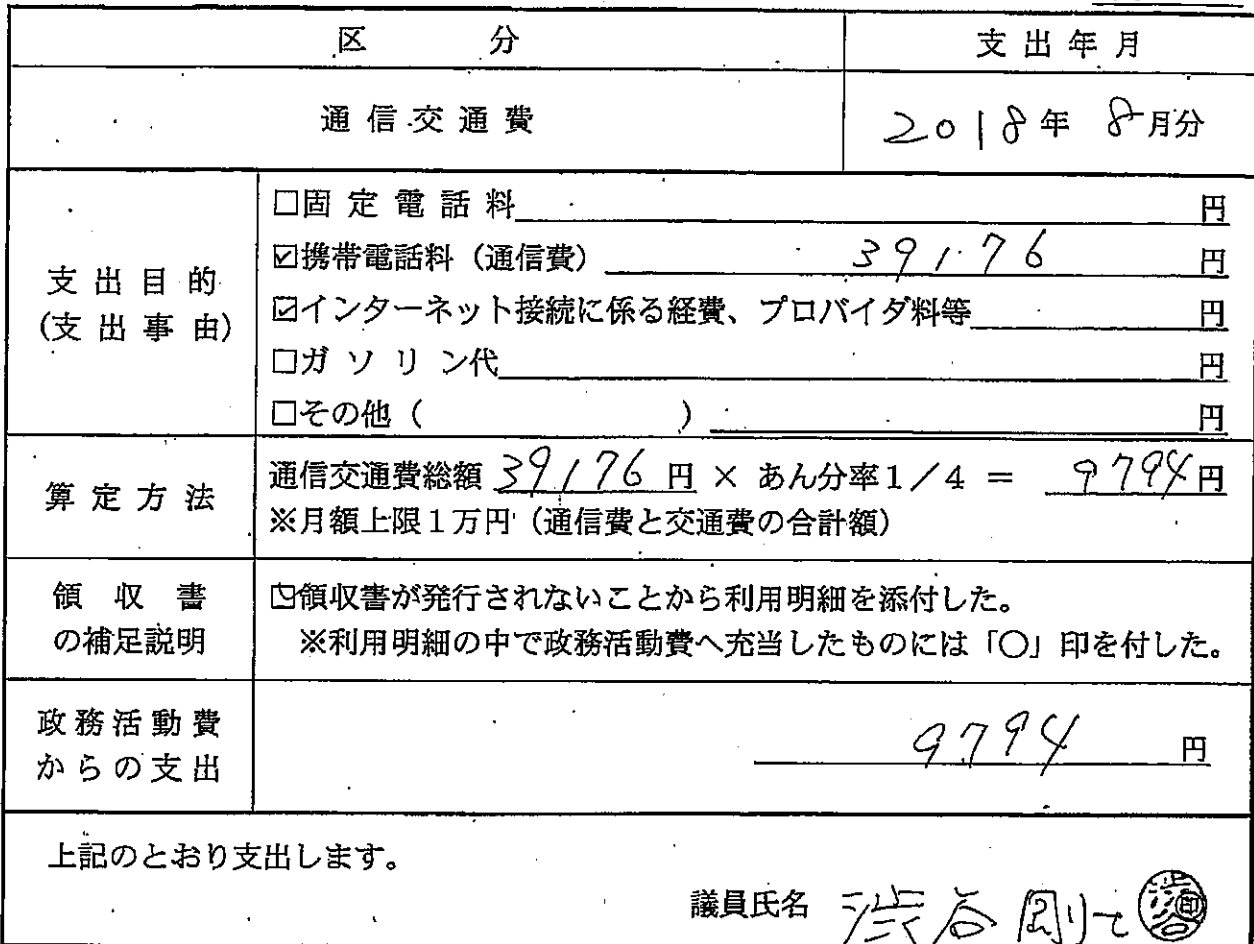 区 分 支出年月
通信交通費 2018年 8月分
支出目的
(支出事由)
□固定電話料 円
☑携帯電話料（通信費） 39176 円
☑インターネット接続に係る経費、プロバイダ料等 円
□ガソリン代 円
□その他（ ） 円
算定方法
通信交通費総額 39176 円 × あん分率1／4 ＝ 9794円
※月額上限1万円（通信費と交通費の合計額）
領収書
の補足説明
☑領収書が発行されないことから利用明細を添付した。
※利用明細の中で政務活動費へ充当したものには「〇」印を付した。
政務活動費
からの支出
9794 円
上記のとおり支出します。
議員氏名 渋谷 剛士 渋谷 印